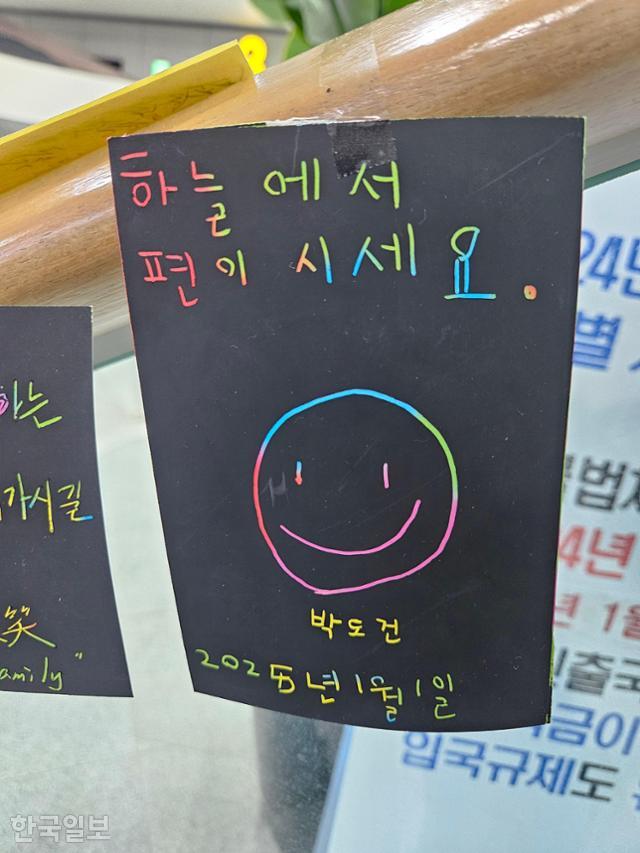 하늘에서
편이 시세요.
박도건
2025년 1월 1일
는
가시길
笑
amily"
24년
별
법
4년
년 1월
출국
금이
입국규제도
한국일보